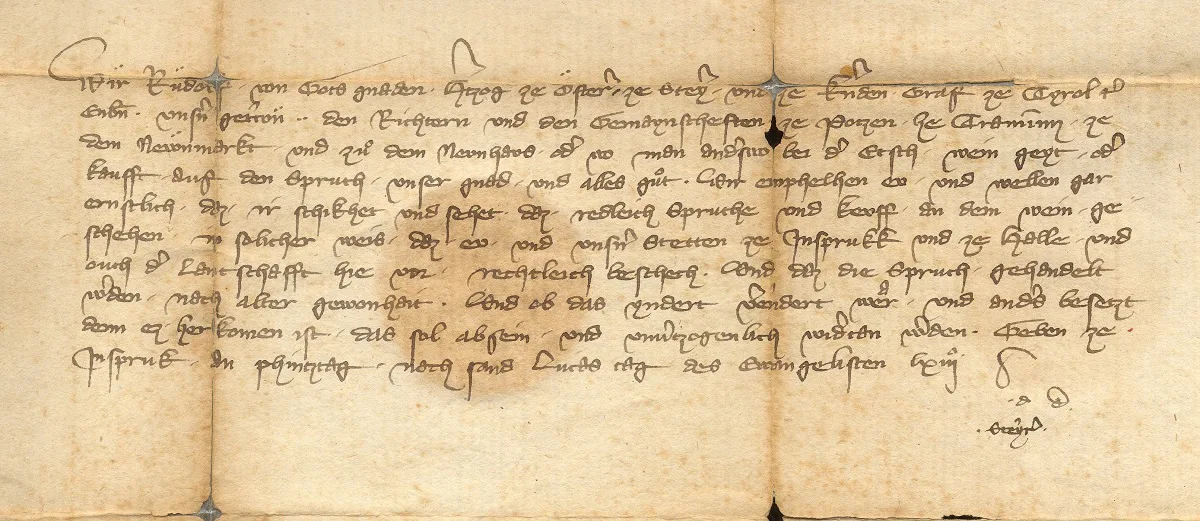 Wir Růdolf von Gots gnaden Hertzog ze Österr ze Steyr und ze Kernden Graf ze Tyrol etc
Enbieten unsern getrewn .. den Richtern und den Gemaynscheften ze Potzen ze Traminn ze
dem Newnmarkt und zů dem Newnhaws oder wo man anderswo bei der Etsch wein geyt oder
kaufft auf den Spruch unser gnad und alles gůt. Wir emphelhen ew und wellen gar
ernstlich daz ir schikhet und sehet daz redleich Spruche und kewff an dem wein ge
schehen in solicher weis daz ew und unsern Stetten ze Insprukk und ze Halle und
ouch der Lantschafft hie vor rechtleich beschech. Und daz die Sprüch gehandelt
werden nach alter gewonhait. Und ob das yndert verendert wer und anders besetzt
denn ez herkomen ist das sol absein und unvertzogenlich widertan werden. Geben ze
Inspruk an phintztag nach sand Lucas tag des Ewangelisten lxiijo
d d
Steyr